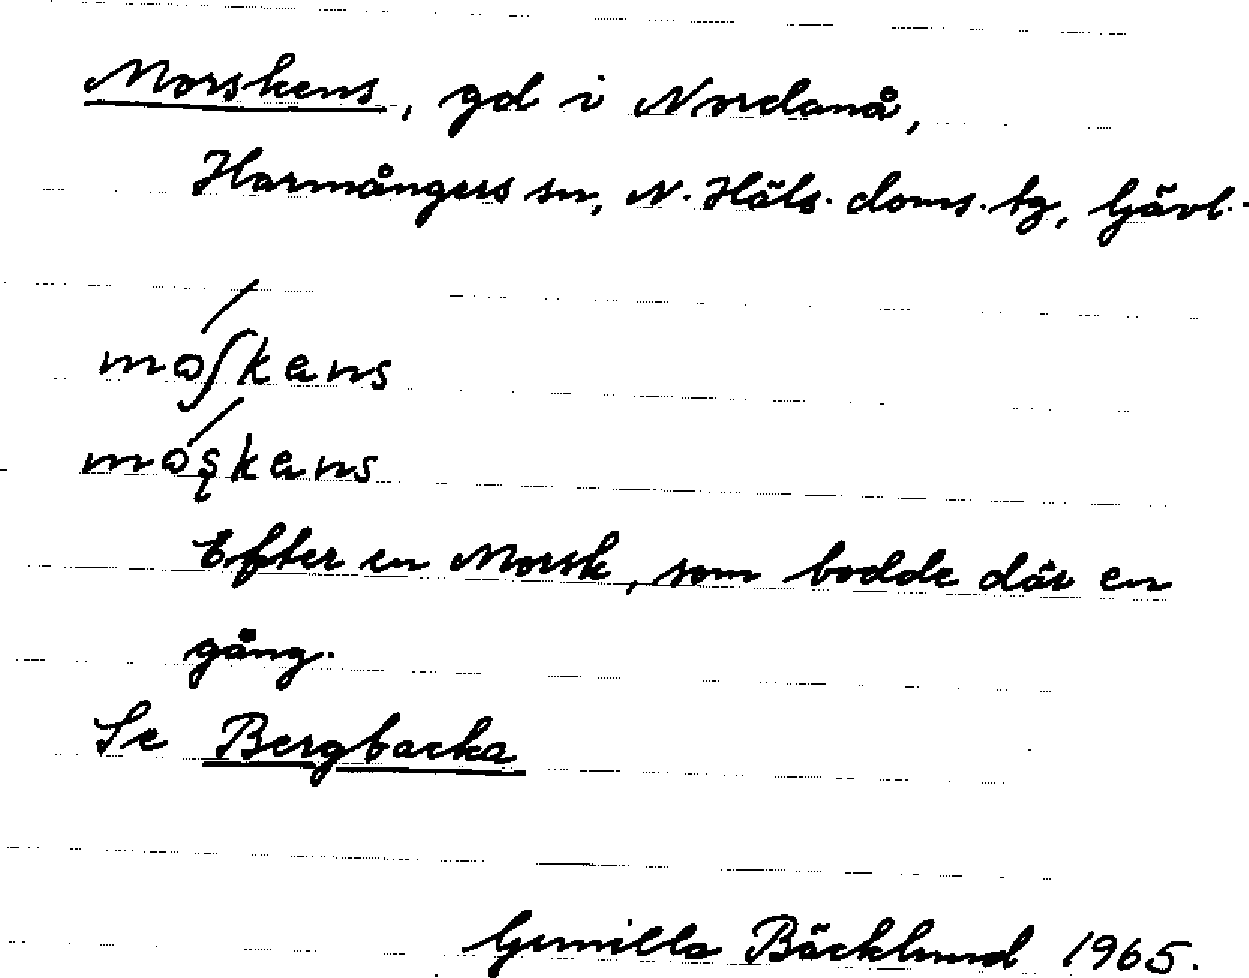 Morskens, gd i Nordanå,
Harmångers sn, N. Häls. doms. tg, Gävl.
móʃkens
móʂkens
Efter en Morsk, som bodde där en
gång.
Se Bergbacka
Gunilla Bäcklund 1965.